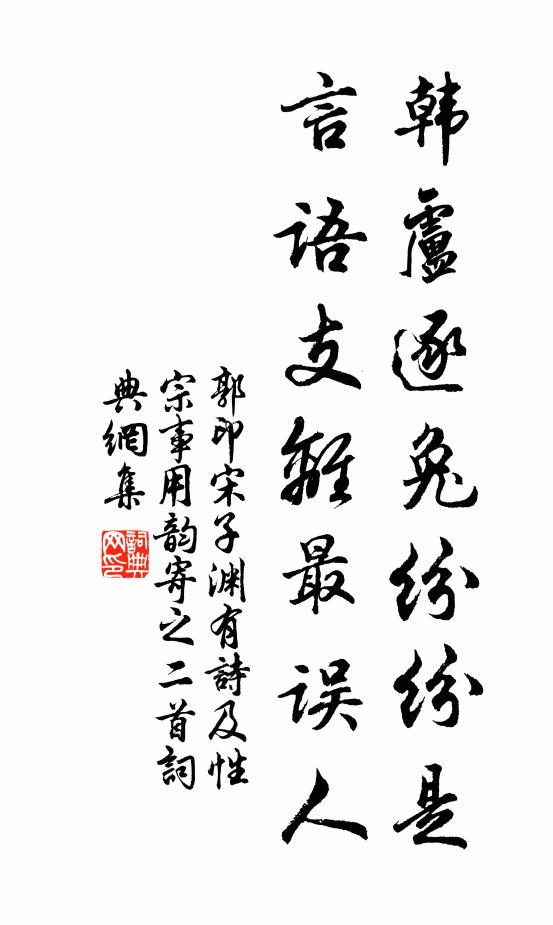 韩盧逐兔纷纷是
言語支離最误人
郭印宋子渊有詩及性
宗事用韵寄之二首詞
典網集
詞典网印